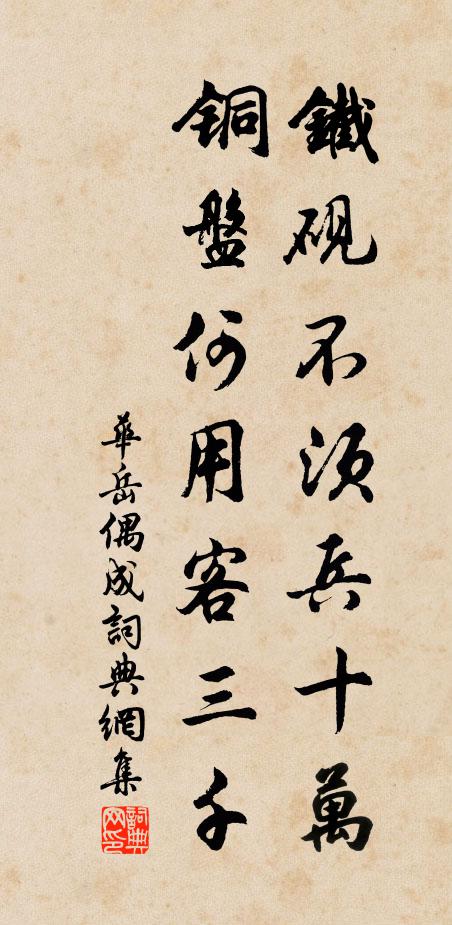 鐵硯不須兵十萬
銅盤何用客三千
華岳偶成詞典網集
詞典网印